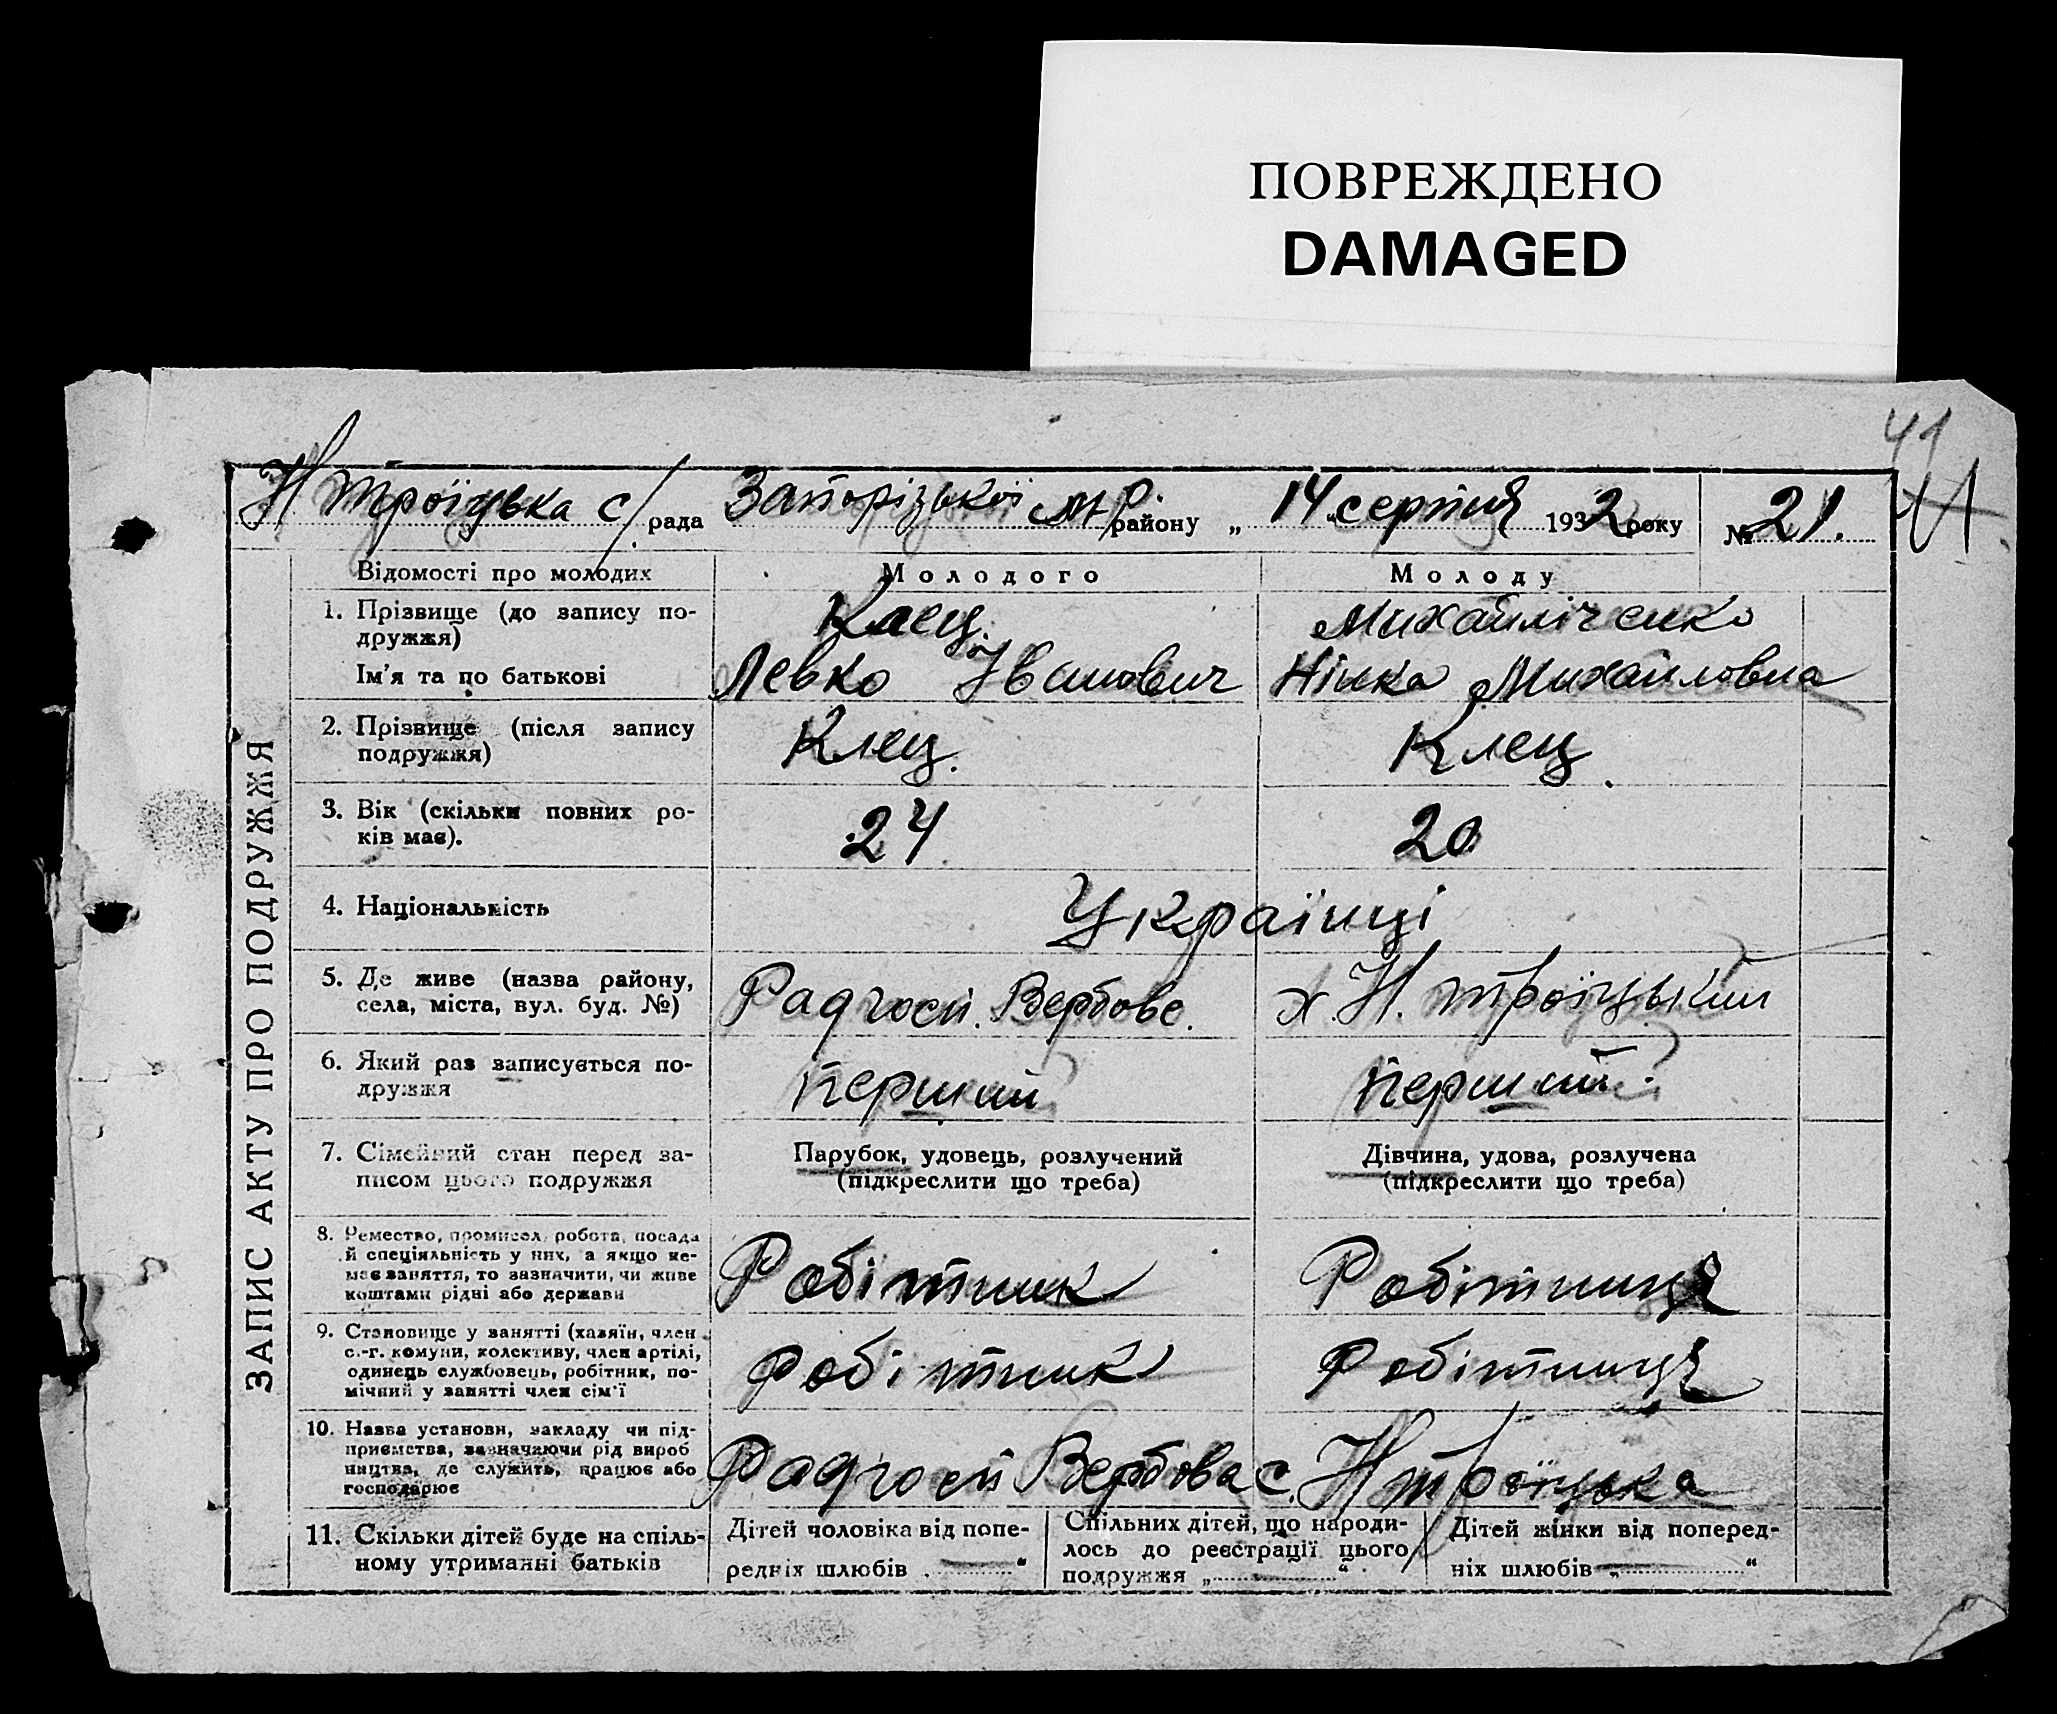 ПОВРЕЖДЕНО
DAMAGED
41
Н Троїцька с/рада Запорізької м/р. району „ 14 „ серпня 1932 року № 21.
ЗАПИС АКТУ ПРО ПОДРУЖЖЯ
Відомості про молодих Молодого Молоду
1. Прізвище (до запису по-
дружжя)
Клец. Михайліченко
Ім'я та по батькові Левко Іванович Нінка Михайловна
2. Прізвище (після запису
подружжя)
Клец. Клец.
3. Вік (скільки повних ро-
ків має).
24 20
4. Національність Українці
5. Де живе (назва району,
села, міста, вул. буд. №)
Радгосп. Вербове. х. Н. Троїцький
6. Який раз записується по-
дружжя
перший перший.
7. Сімейний стан перед за-
писом цього подружжя
Парубок, удовець, розлучений
(підкреслити що треба)
Дівчина, удова, розлучена
(підкреслити що треба)
8. Ремество, промисел, робота, посада
й спеціяльність у них, а якщо не-
має заняття, то зазначити, чи живе
коштами рідні або держави
Робітник Робітниця
9. Становище у занятті (хазяїн, член
с.-г. комуни, колективу, член артілі,
одинець службовець, робітник, по-
мічний у занятті член сім'ї
робітник Робітниця
10. Назва установи, закладу чи під-
приємства, зазначаючи рід вироб
ництва, де служить, працює або
господарює
Радгосп Вербова с. Н Троїцька
11. Скільки дітей буде на спіль-
ному утриманні батьків
Дітей чоловіка від попе-
редніх шлюбів „ — “
Спільних дітей, що народи-
лось до реєстрації цього
подружжя „ “
Дітей жінки від поперед-
ніх шлюбів „ — “